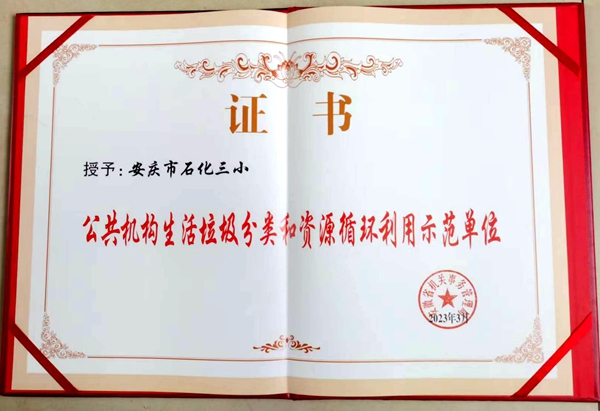 证书
授予：安庆市石化三小
公共机构生活垃圾分类和资源循环利用示范单位
安徽省机关事务管理局
2023年3月